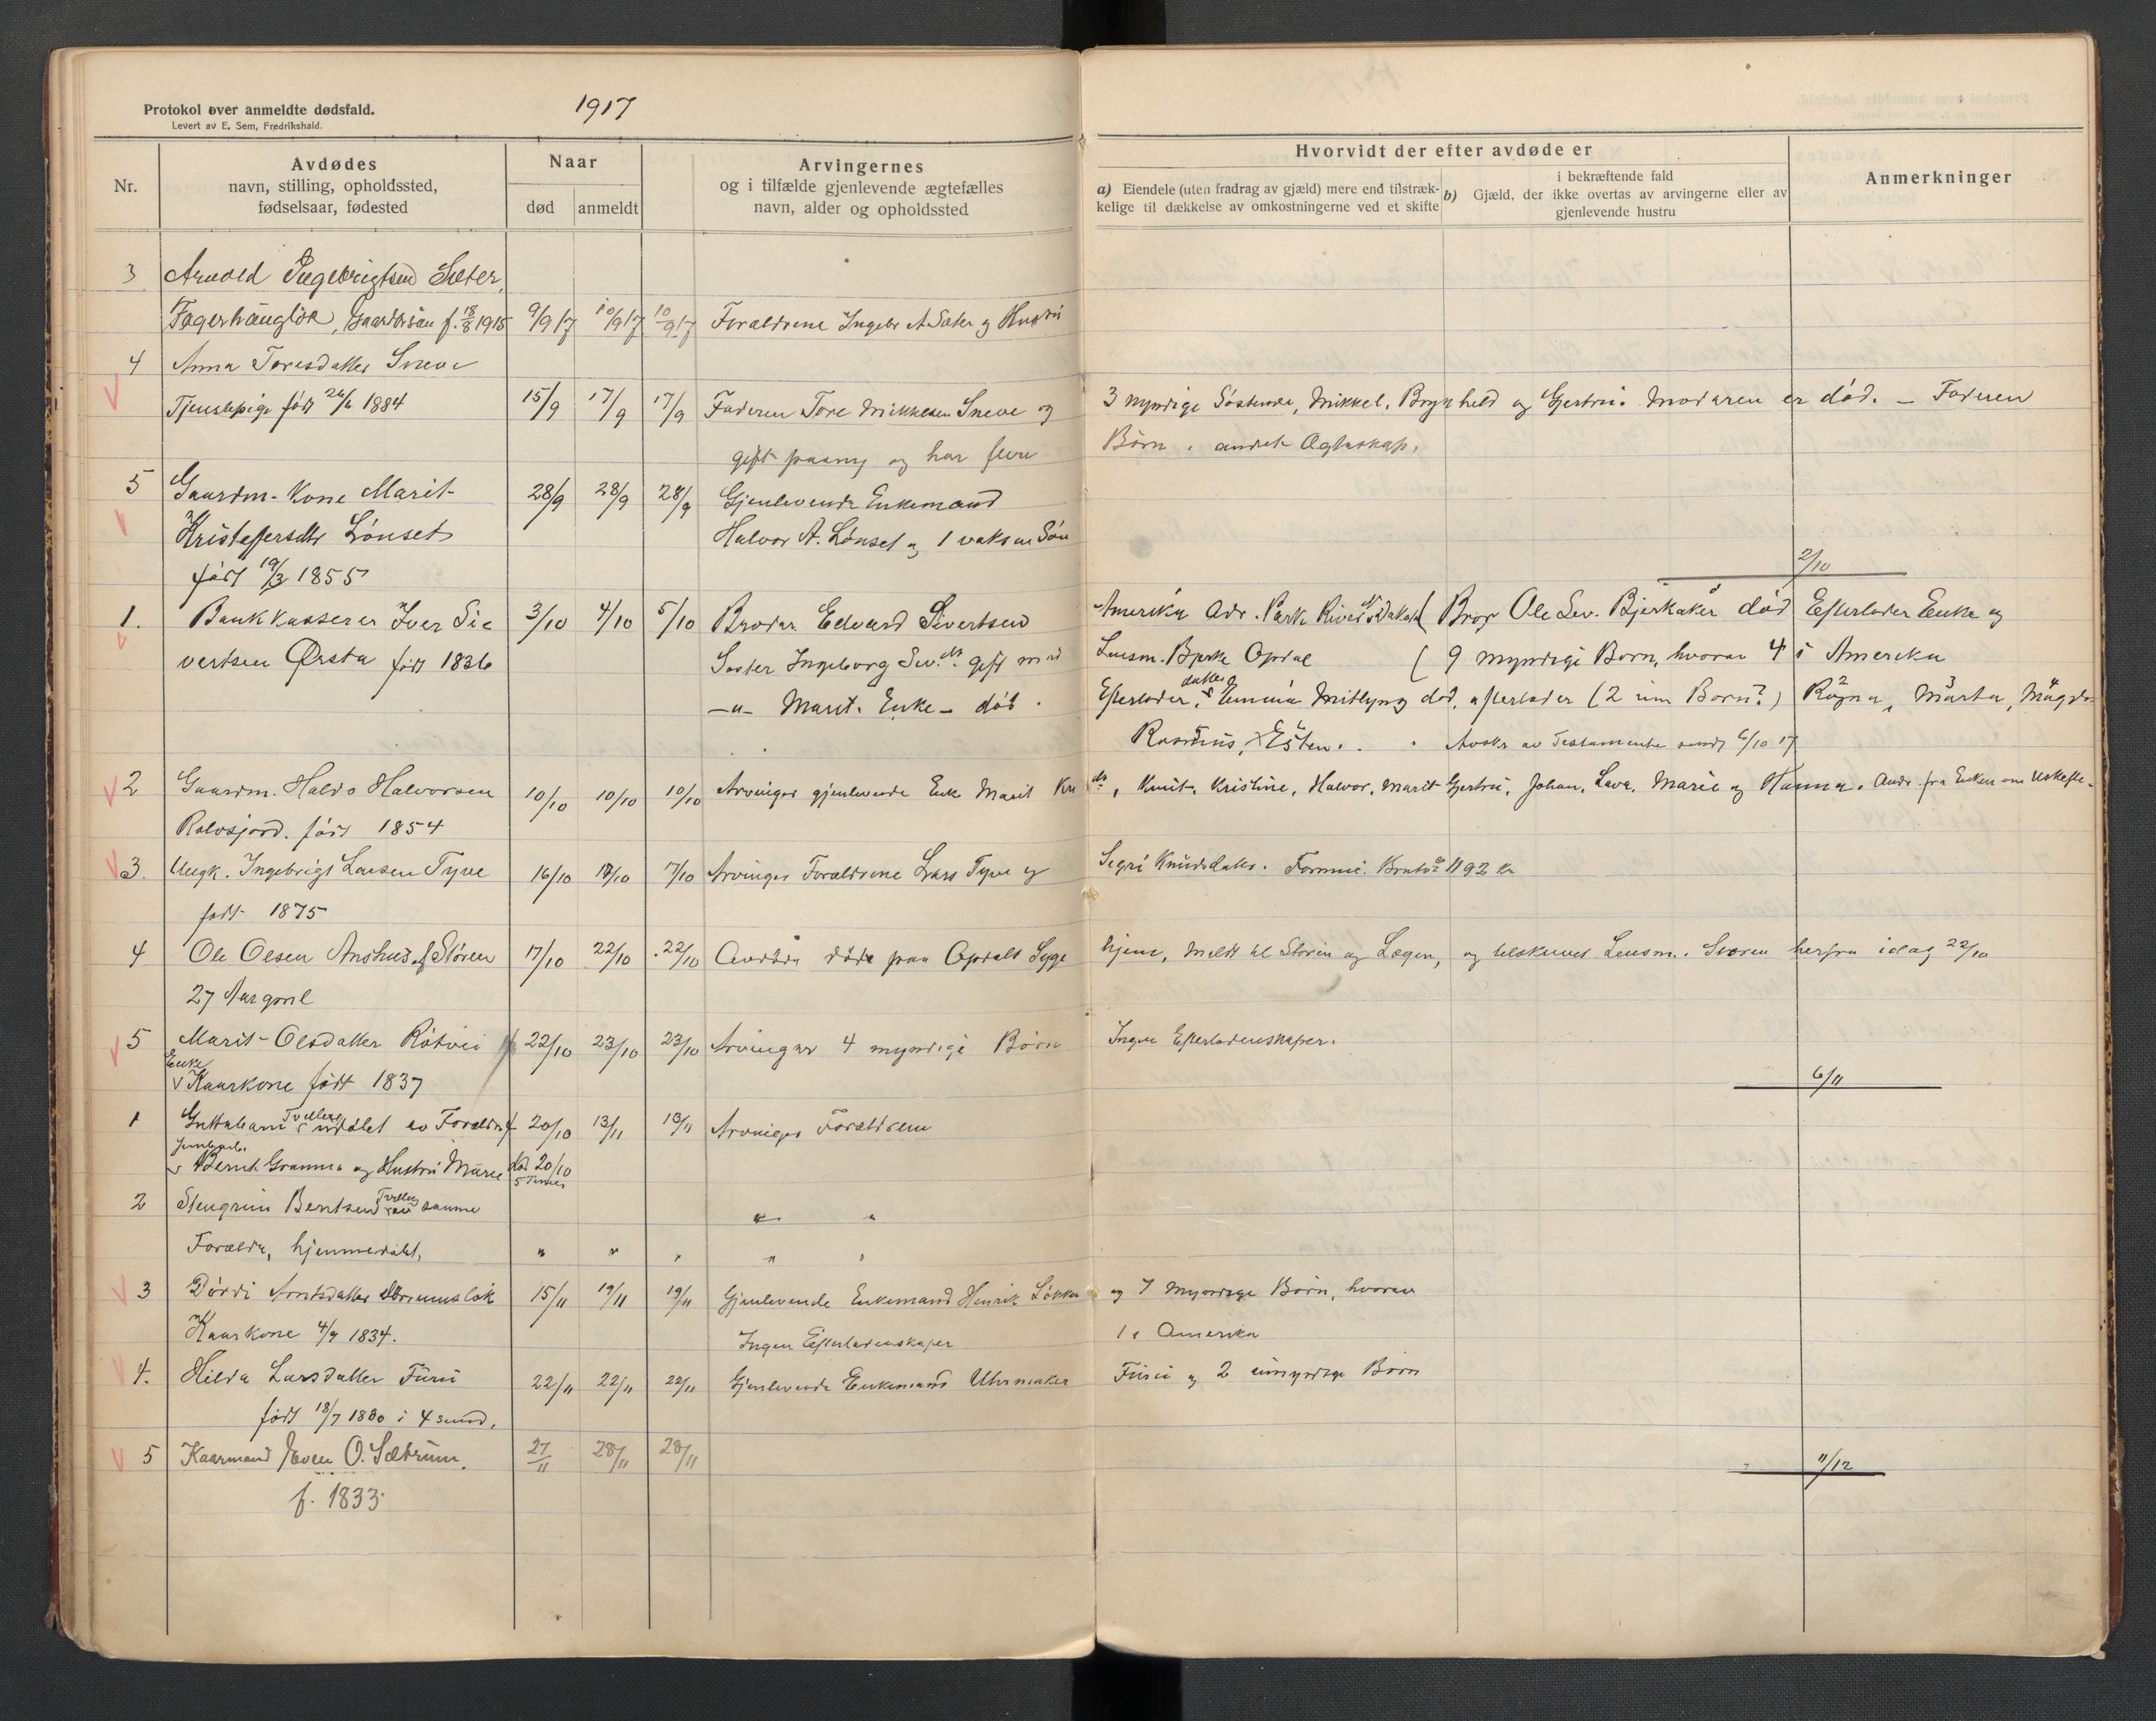 Protokol over anmeldte dødsfald.
Levert av E. Sem, Fredrikshald.
1917
Nr.
Avdødes
navn, stilling, opholdssted,
fødselsaar, fødested
Naar
død anmeldt
Arvingernes
og i tilfælde gjenlevende ægtefælles
navn, alder og opholdssted
Hvorvidt der efter avdøde er
a) Eiendele (uten fradrag av gjæld) mere end tilstræk-
kelige til dækkelse av omkostningerne ved et skifte
i bekræftende fald
b) Gjæld, der ikke overtas av arvingerne eller av
gjenlevende hustru
Anmerkninger
3 Arnold Ingebrigtsen Sæter,
f. 18/8 1915 9/9 17 10/9 17 10/9 17 Forældrene Ingebr A. Sæter og Hustru
4 Anna Toresdatter Sneve
Tjenstepige født 26/6 1884 15/9 17/9 17/9 Faderen Tore Mikkelsen Sneve og 3 myndige Søskende, Mikkel, Brynhild og Gjertru. Moderen er død. – Faderen
gift paany og har flere Børn i andet Ægteskap.
5 Gaardm. Kone Marit 28/9 28/9 28/9 Gjenlevende Enkemand
Kristoffersdtr Lønset Halvor A. Lønset og 1 voksen Søn
født 19/3 1855
2/10
1. Bankkasserer Iver Si- 3/10 4/10 5/10 Broder Edvard Sivertsen Amerika Adr. Park River N. Dakota ( Bror Ole Siv. Bjerkaker død Efterlader Enke og
vertsen Ørsta født 1836 Søster Ingeborg Siv.dt. gift med Lensm. Bjerke Opdal ( 9 myndige Born, hvorav 4 i Amerika
–"– Marit. Enke – død. Efterlader datter Emma død, efterlader (2 um Born?) Ragna, Marta,
Rasmus, Esten. Avskr av Testamente sendt 6/10 17
2 Gaardm. Haldo Halvorsen 10/10 10/10 10/10 Arvinger gjenlevende Enke Marit dt, Knut, Kristine, Halvor, Marit Gjertru, Johan, Lava, Marie og Hanna. Andr. fra Enken om Uskifte.
født 1854
3. Ungk. Ingebrigt Larsen Tyve 16/10 17/10 Arvinger Forældrene Lars Tyve og Sigri Knudsdatter. Formue. Brutto 1192 Kr
født 1875
4 Ole Olsen af Støren 17/10 22/10 22/10 Avdøde døde paa Opdals Syge hjem, meldt til Støren og Lægen, og tilskrevet Lensm. Støren herfra idag 22/10
27 Aar gml
5 Marit Olsdatter Røtvei 22/10 23/10 23/10 Arvinger 4 myndige Børn Ingen Efterladenskaper.
Enke
Kaarkone født 1837
6/11
1 Guttebarn Tvilling udøbt av Forældre f 20/10 13/11 13/11 Arvinger Forældrene
Bernt Granmo og Hustru Marie død 20/10
5 Timer
2 Stengrim Berntsen Tvilling av samme " "
Forældre, hjemmedøbt, " " " " "
3 Dordi Arntsdatter 15/11 19/11 19/11 Gjenlevende Enkemand Henrik Løkken og 7 Myndige Børn, hvorav
Kaarkone 4/9 1834. Ingen Efterladenskaper 1 i Amerika
4. Hilda Larsdatter Furu 22/11 22/11 22/11 Gjenlevende Enkemand Uhrmaker Furu og 2 umyndige Børn
født 18/7 1880 i
5 Kaarmand Even O. Sætrum. 27/11 28/11 28/11
11/12
f. 1833